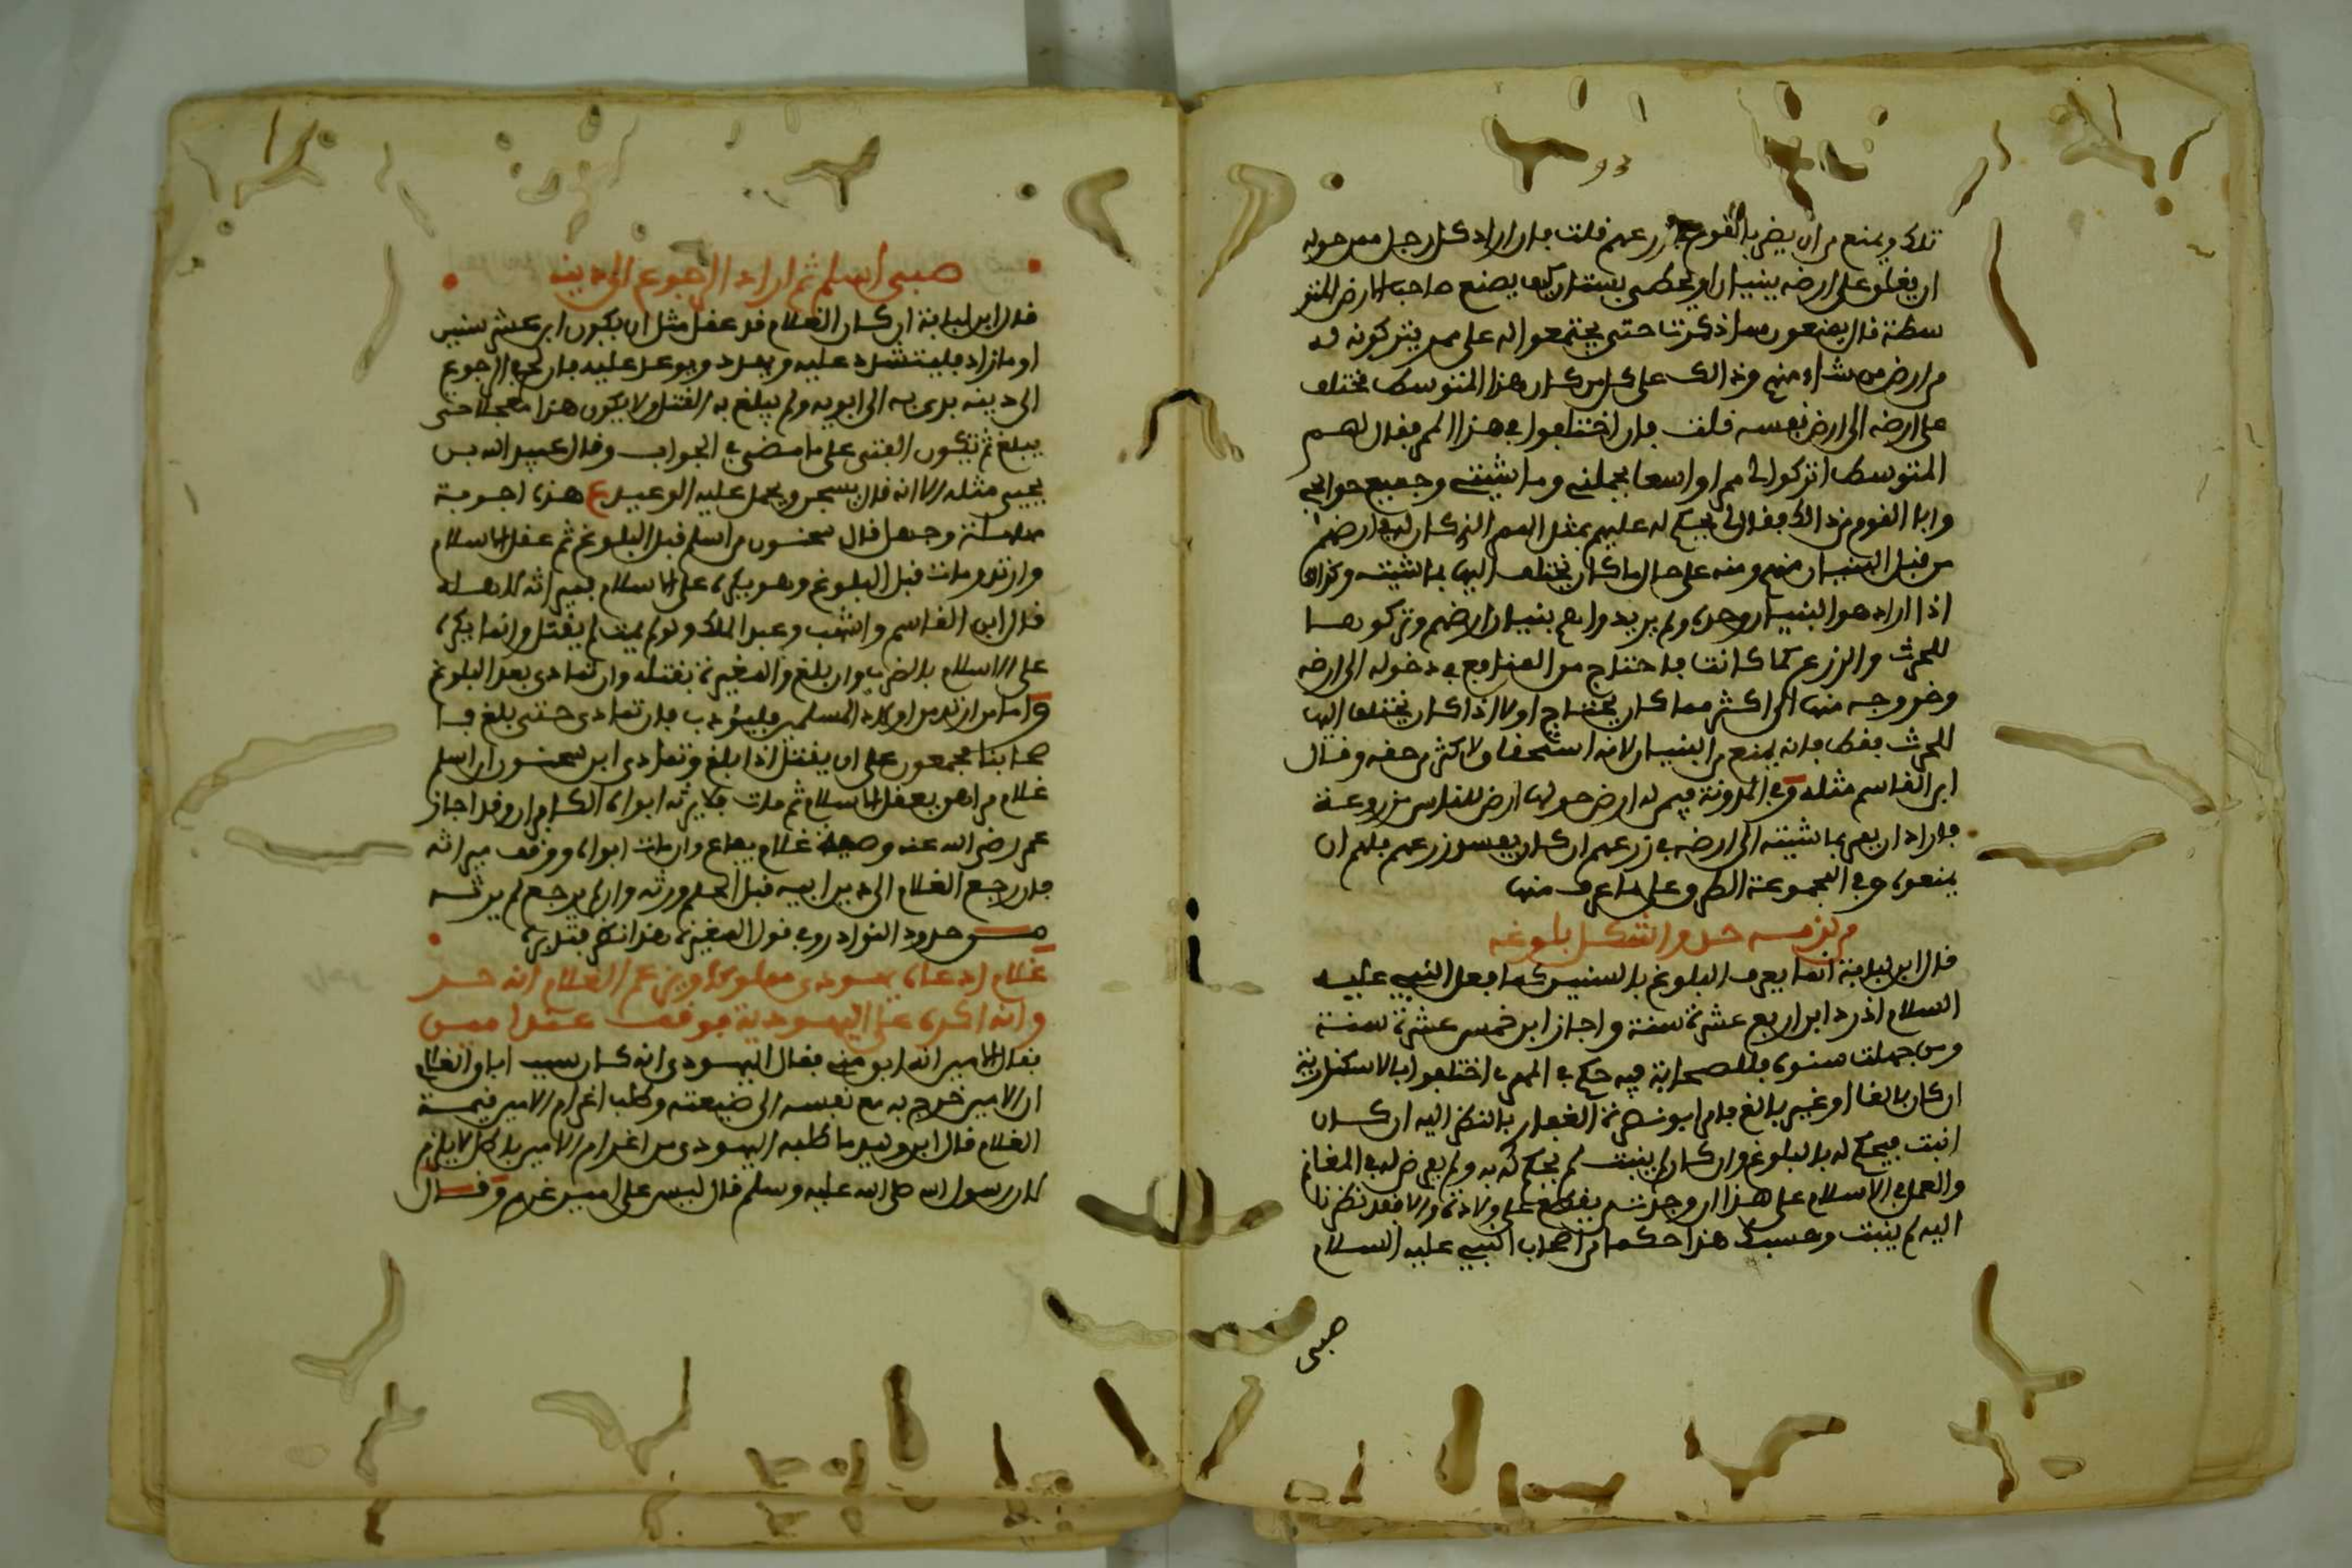 93
تلك ويمنع من ان يضر بالقوم في زرعهم قلت فان اراد كل رجل ممن حوله
ان يغلق على ارضه ببنيان او يحظى بستان كيف يصنع صاحب الارض المتو
سطة قال يمنعون مما ذكرت حتى يجتمعوا له على ممر يتركونه له
من ارض من شاء منهم وذالك على كل من كان هذا المتوسط يختلف
على ارضه الى ارض نفسه قلت فان اختلفوا في هذا الممر فقال لهم
المتوسط اتركوا لي ممرا واسعا لجملتي وماشيتي وجميع حوائجي
وابا القوم من ذالك فقال لي يحكم له عليهم بمثل الممر الذي كان له في ارضهم
من قبل البنيان منهم ومنه على حال ما كان يختلف اليها بماشيته وكذالك
اذا اراد هو البنيان وحده ولم يريدوا هم بنيان ارضهم وتركوها
للحرث والزرع كما كانت فاحتاج من المنافع في دخوله الى ارضه
وخروجه منها الى اكثر مما كان يحتاج اولا اذا كان يختلف اليها
للحرث فقط فانه يمنع من البنيان لانه استحقاقا لاكثر من حقه وقال
ابن القاسم مثله وفي المدونة فيمن له ارض حولها ارض للناس مزروعة
فاراد ان يمر بماشيته الى ارضه في زرعهم ان كان يفسد زرعهم فلهم ان
يمنعوه وفي المجموعة الطرق على ما عرف منها
من لزمه حد واشكل بلوغه
قال ابن لبابة انما يعرف البلوغ بالسنين كما فعل النبي عليه
السلام اذ رد ابن اربع عشرة سنة واجاز ابن خمس عشرة سنة
ومن جهلت سنوه فللصحابة فيه حكم في المهري اختلفوا بالاسكندرية
ان كان بالغا او غير بالغ فامر ابو بصرة الغفاري بالنظر اليه ان كان
انبت فيحكم له بالبلوغ وان كان لم ينبت لم يحكم له به ولم يعرض له في المغانم
والعمل في الاسلام على هذا ان وجدت من يقطع على ولادته والا فقد نظرنا
اليه لم ينبت وحسبك هذا حكما من اصحاب النبي عليه السلام
صبي
صبي اسلم ثم اراد الرجوع الى دينه
قال ابن لبابة ان كان الغلام قد عقل مثل ان يكون ابن عشر سنين
او ما زاد فليتشدد عليه ويهدد ويوعد عليه فان لج في الرجوع
الى دينه برئ به الى ابويه ولم يبلغ به القتل ولا يكون هذا معجلا حتى
يبلغ ثم تكون الفتى على ما مضى في الجواب وقال عبيد الله بن
يحيى مثله الا انه قال يسجن ويحمل عليه الوعيد ع هذه اجوبة
وجهل قال سحنون من اسلم قبل البلوغ ثم عقل الاسلام
وارتد ومات قبل البلوغ وهو يكره على الاسلام فميراثه لاهله
قال ابن القاسم واشهب وعبد الملك ولو لم يمت لم يقتل وانما يكره
على الاسلام بالضرب وان بلغ والمغيرة بقتله وان تمادى بعد البلوغ
واما من ارتد من اولاد المسلمين فليؤدب فان تمادى حتى بلغ فا
صحابنا مجمعون على ان يقتل اذا بلغ وتمادى ابن سحنون ان اسلم
غلام مراهق يعقل الاسلام ثم مات فلا يرثه ابواه الكافران وقد اجاز
عمر رضي الله عنه وصية غلام يفاع وان مات ابواه ووقف ميراثه
فان رجع الغلام الى دين ابيه قبل الحلم ورثه وان لم يرجع لم يرثه
من حدود النوادر وفي قول المغيرة هذا نظر فتدبره
غلام ادعاه يهودي مملوكا وزعم الغلام انه حر
وانه اكره على اليهودية فوقف عند امين
فقال الامين انه ابق مني فقال اليهودي انه كان سبب اباق الغلام
ان الامين خرج به مع نفسه الى ضيعته وطلب اغرام الامين قيمة
الغلام قال ابن وليد ما طلبه اليهودي من اغرام الامين باطل لا يلزم
لان رسول الله صلى الله عليه وسلم قال ليس على امين غرم وقال